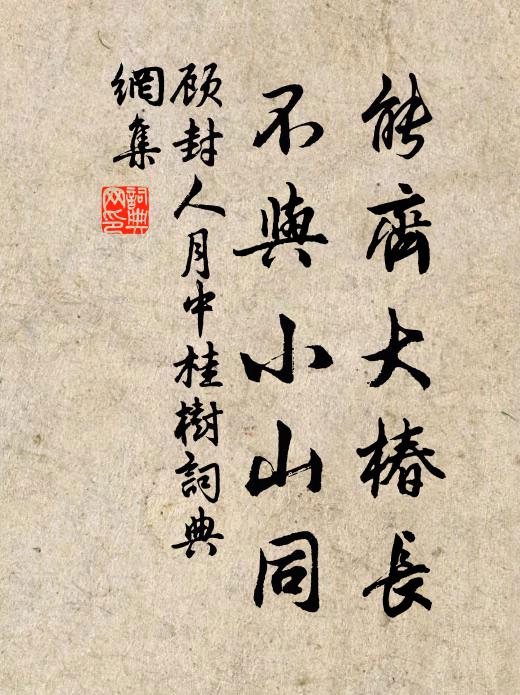 能齊大椿長
不與小山同
顧封人月中桂樹詞典
網集
詞典網印